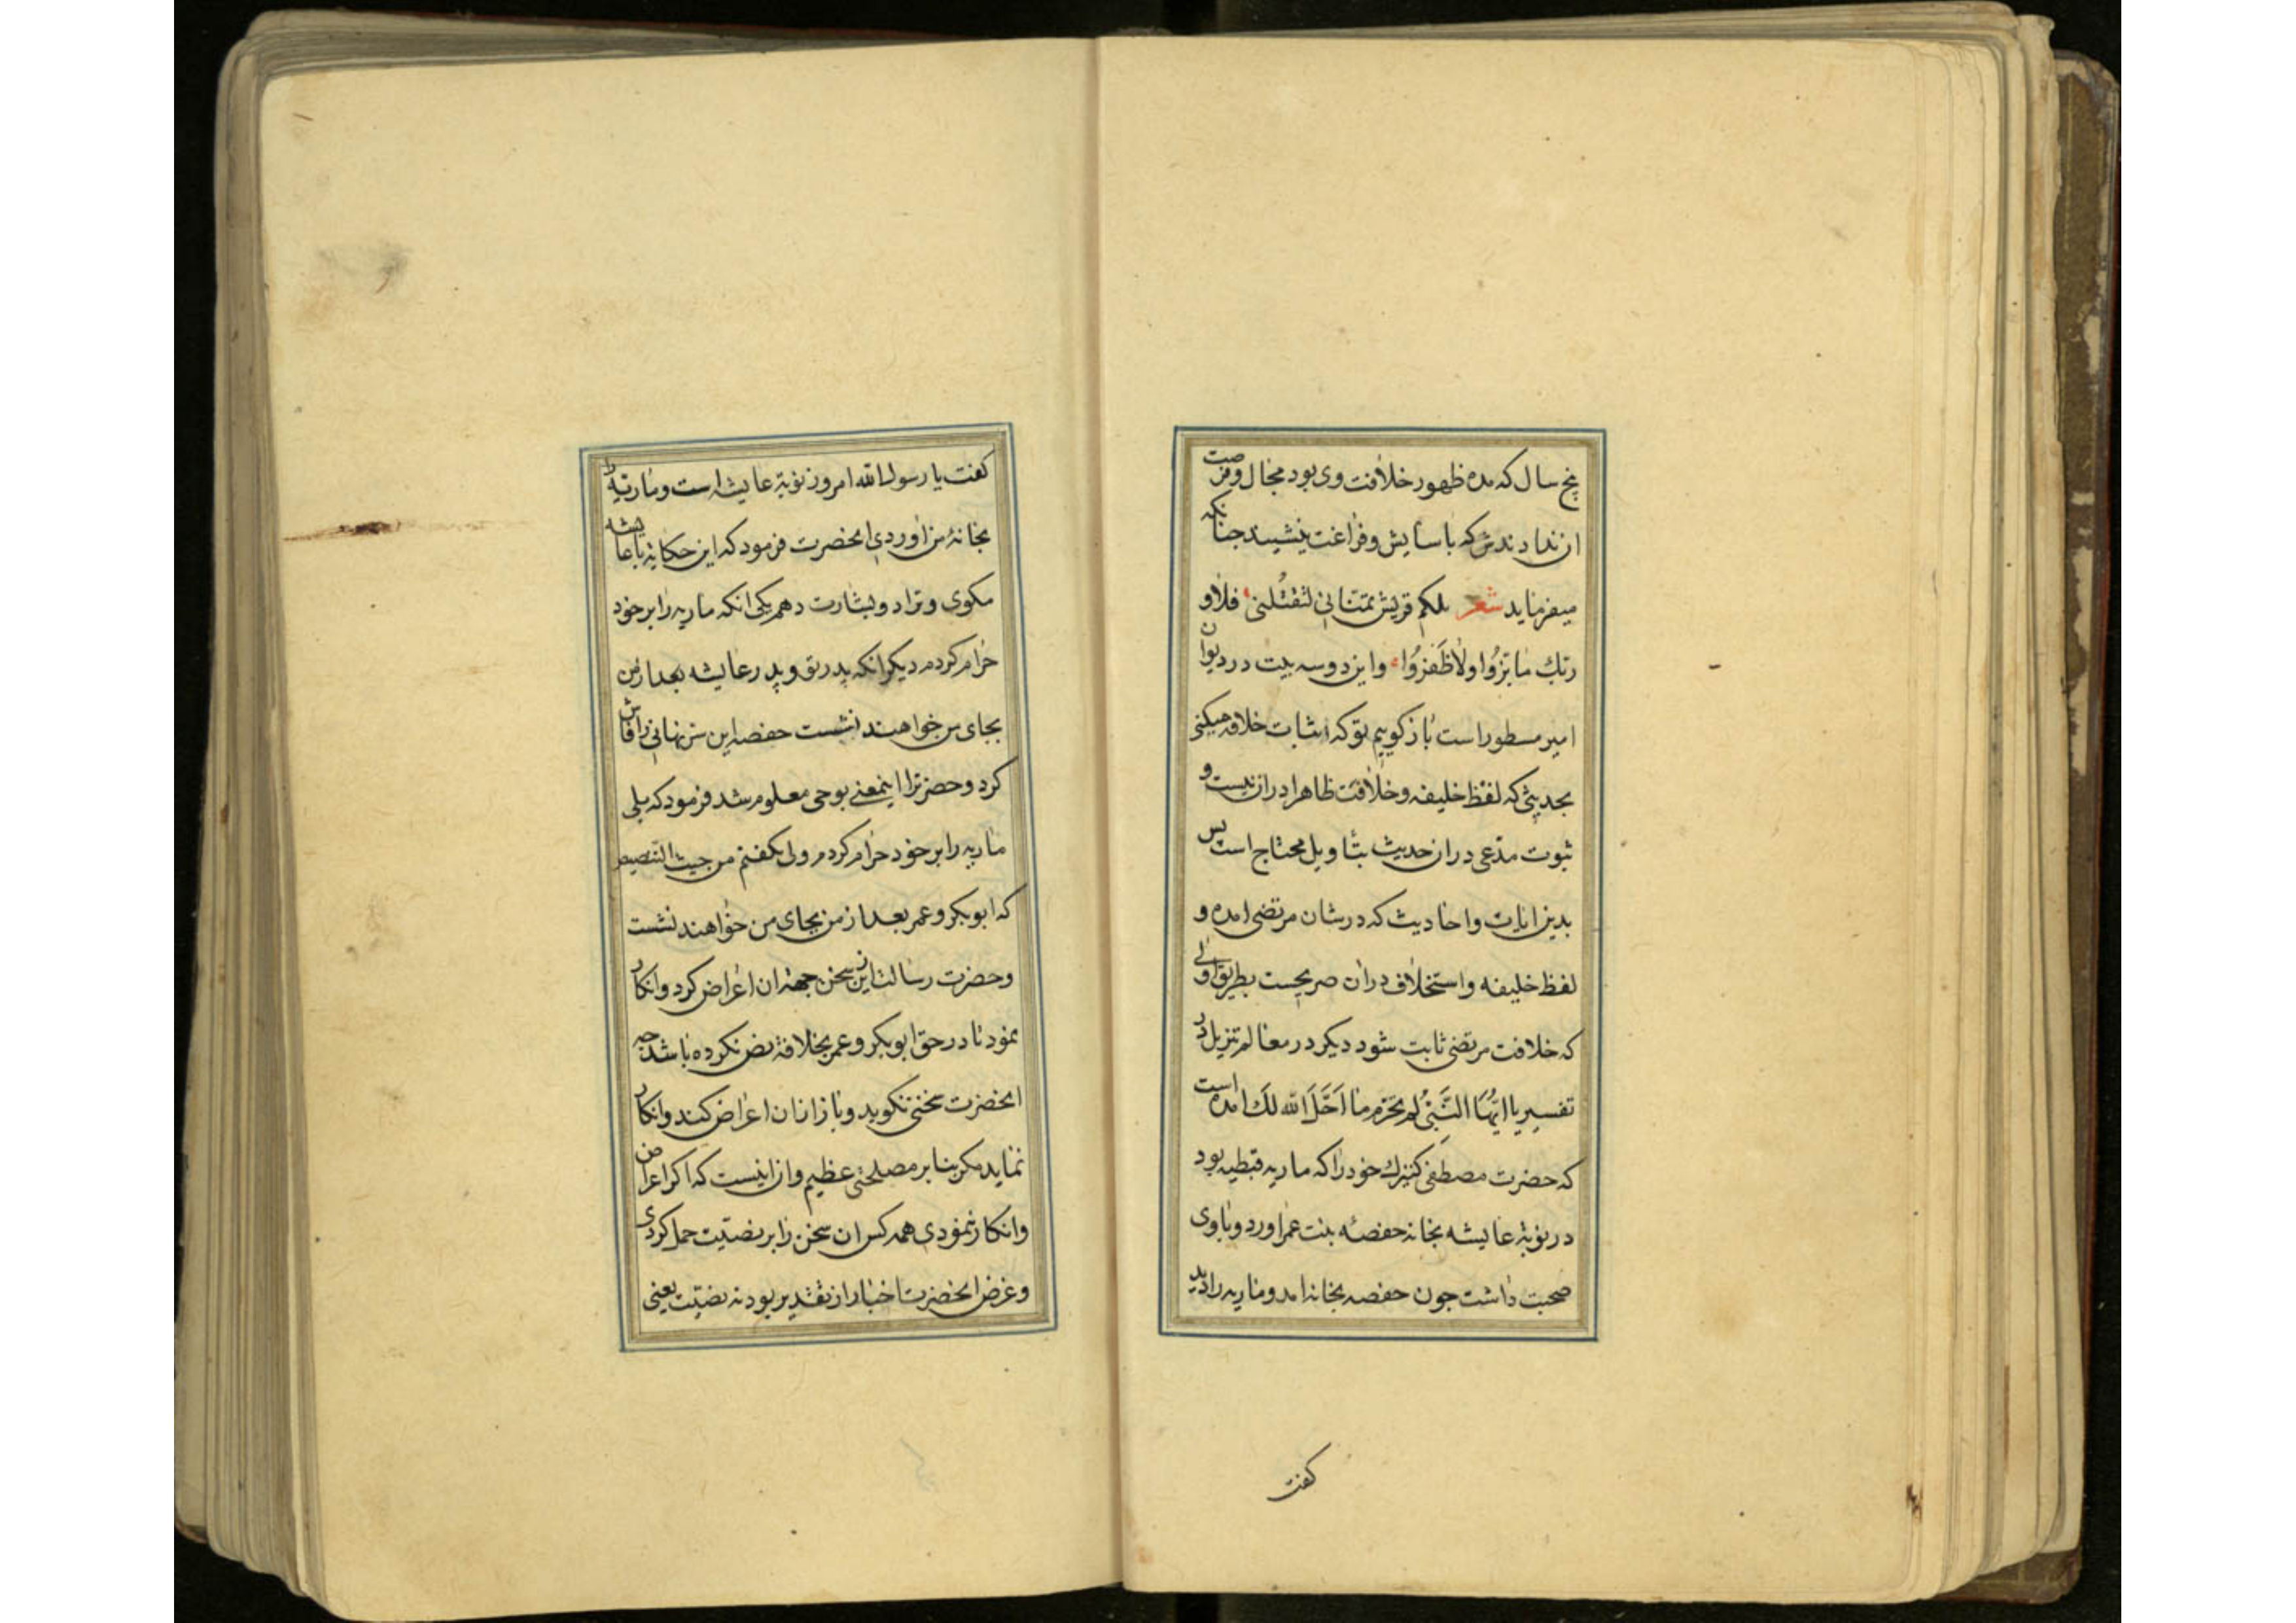 پنج سال که مده ظهور خلافت وی بود مجال و فرصت
ازندادندش که باسایش و فراغت بنشیند جنانکه
میفرماید شعر تلکم قریش تمنانی لتقتلنی فلا و
ربک ما بزوا ولا ظفروا واین دوسه بیت در دیوان
امیر مسطور است باز کوییم توکه اثبات خلافه میکنی
بحدیثی که لفظ خلیفه وخلافت ظاهرا دران نیست و
ثبوت مدعی دران حدیث بتاویل محتاج است پس
بدین ایات واحادیث که درشان مرتضی امده و
لفظ خلیفه واستخلاف دران صریحست بطریق اولی
که خلافت مرتضی ثابت شود دیکر در معالم تنزیل در
تفسیر یا ایُّهَا النَّبیُّ لِمَ تحَرّم ما اَحَّلَ الله لَکَ امده است
که حضرت مصطفی کنیزک خود را که ماریه قبطیه بود
در نوبة عایشه بخانه حفصه بنت عمر اورد و باوی
صحبت داشت جون حفصه بخانه امد و ماریه را دید
کفت
کفت یا رسول الله امروز نوبة عایشه است و ماریه را
بخانهٔ من اوردی انحضرت فرمود که این حکایة باعایشه
مکوی وترا دو بشارت دهم یکی انکه ماریه را بر خود
حرام کردم دیکر انکه پدر تو و پدر عایشه بعد از من
بجای من خواهند نشست حفصه این سر نهانی را فاش
کرد وحضرترا اینمعنی بوحی معلوم شد فرمود که بلی
ماریه را بر خود حرام کردم ولی نکفتم من حیث التنصیص
که ابوبکر وعمر بعد از من بجای من خواهند نشست
وحضرت رسالت ازین سخن جهة ان اعراض کرد وانکار
نمود تا در حق ابوبکر وعمر بخلافة نص نکرده باشد جه
انحضرت سخنی نکوید و باز ازان اعراض کند وانکار
نماید مکر بنا بر مصلحتی عظیم وان اینست که اکر اعراض
وانکار ننمودی همه کس ان سخن را بر نصیت حمل کردی
وغرض انحضرت اخبار از تقدیر بود نه نصیت یعنی